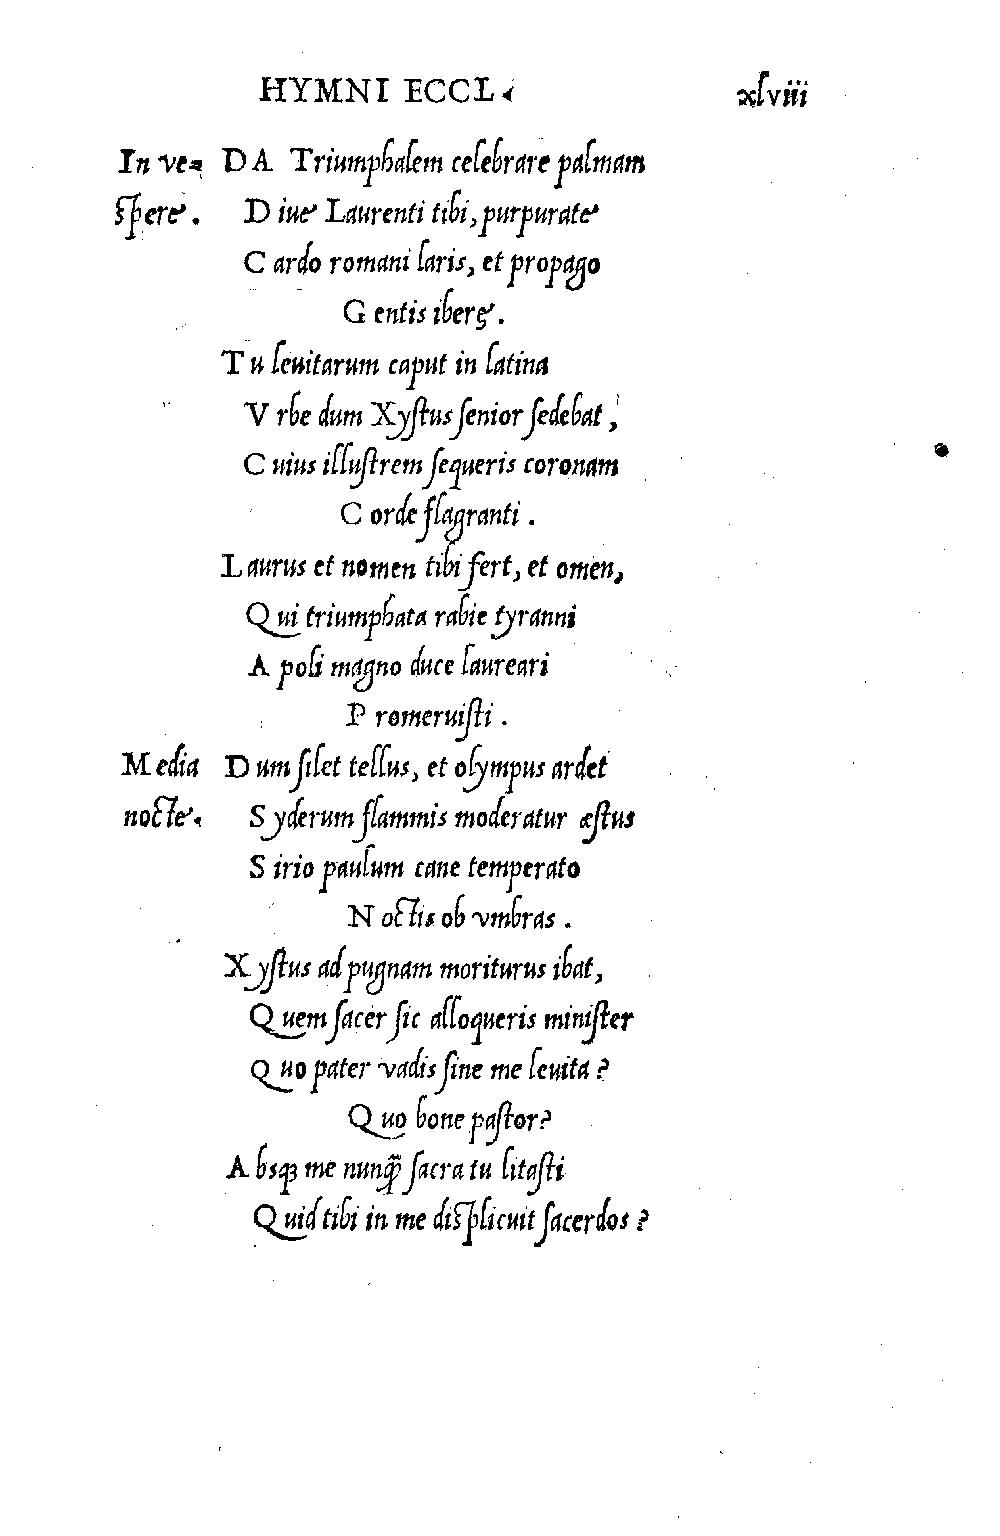 HYMNI ECCL. xlviii
In ve= DA Triumphalem celebrare palmam
spere. Diue Laurenti tibi, purpurate
Cardo romani laris, et propago
Gentis iberę.
Tu leuitarum caput in latina
Vrbe dum Xystus senior sedebat,
Cuius illustrem sequeris coronam
Corde flagranti.
Laurus et nomen tibi fert, et omen,
Qui triumphata rabie tyranni
A poli magno duce laureari
Promeruisti.
Media Dum silet tellus, et olympus ardet
nocte. Syderum flammis moderatur æstus
Sirio paulum cane temperato
Noctis ob vmbras.
Xystus ad pugnam moriturus ibat,
Quem sacer sic alloqueris minister
Quo pater vadis sine me leuita?
Quo bone pastor?
Absq; me nunq̃ sacra tu litasti
Quid tibi in me displicuit sacerdos?